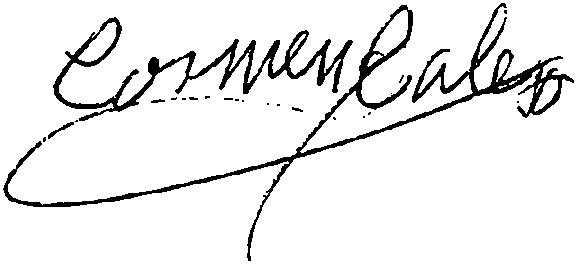 Carmen Cale